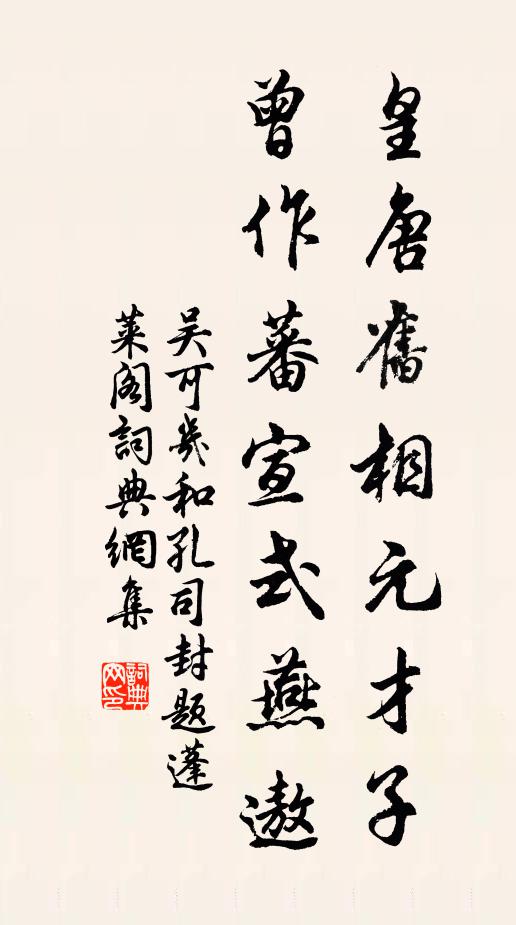 皇唐舊相元才子
曾作蕃宣式燕遨
吴可幾和孔司封題蓬
萊阁詞典網集
詞典網印